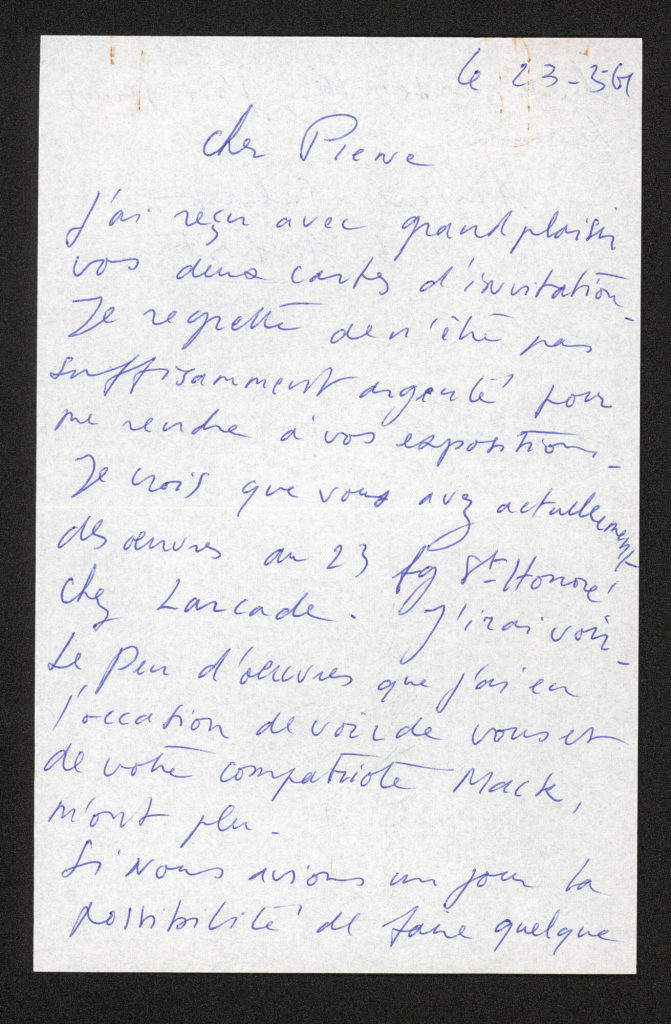 le 23-5-61
cher Pierre
J'ai reçu avec grand plaisir
vos deux cartes d'invitation.
Je regrette de n'être pas
suffisamment argenté pour
me rendre à vos expositions.
Je crois que vous avez actuellement
des oeuvres au 23 fg St-Honoré
chez Larcade. J'irai voir.
Le peu d'oeuvres que j'ai eu
l'occation de voir de vous et
de votre compatriote Mack,
m'ont plu.
Si nous avions un jour la
possibilité de faire quelque